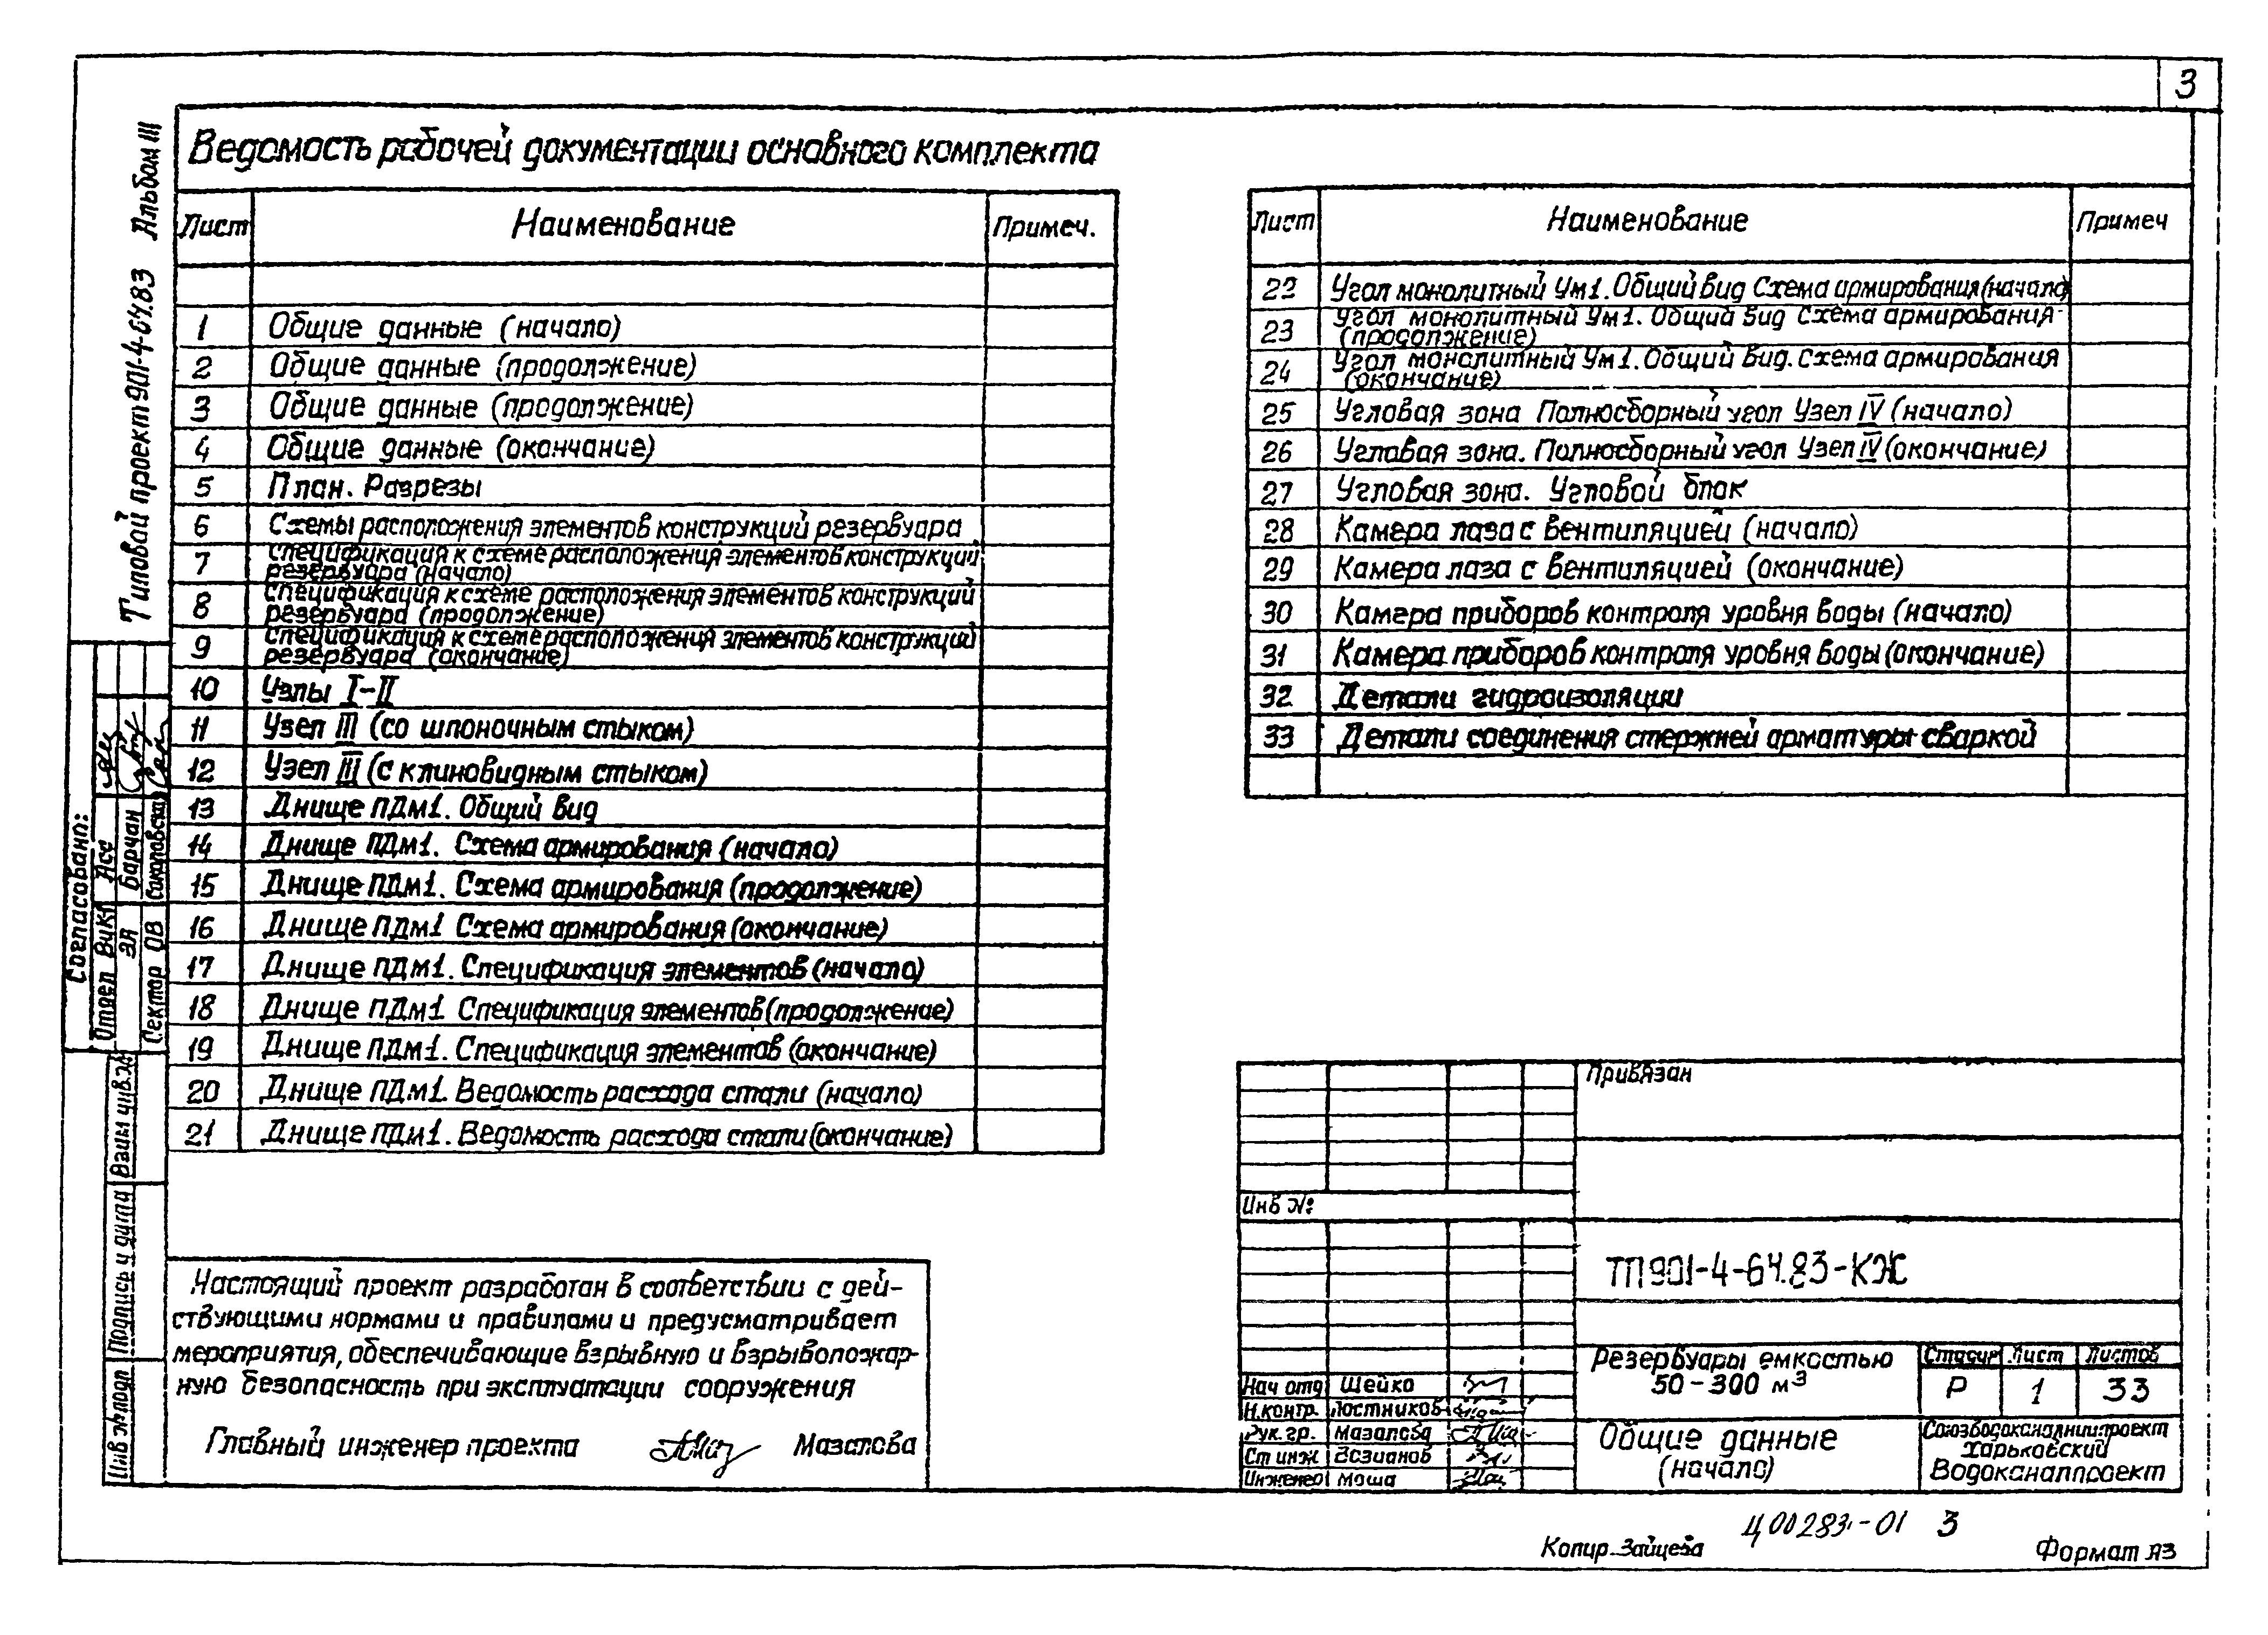 3
Типовой проект 901-4-64.83 Альбом III
Ведомость рабочей документации основного комплекта
Лист Наименование Примеч.
1 Общие данные (начало)
2 Общие данные (продолжение)
3 Общие данные (продолжение)
4 Общие данные (окончание)
5 План. Разрезы
6 Схемы расположения элементов конструкций резервуара
7 Спецификация к схеме расположения элементов конструкций
резервуара (начало)
8 Спецификация к схеме расположения элементов конструкций
резервуара (продолжение)
9 Спецификация к схеме расположения элементов конструкций
резервуара (окончание)
10 Узлы I-II
11 Узел III (со шпоночным стыком)
12 Узел III (с клиновидным стыком)
13 Днище ПДм1. Общий вид
14 Днище ПДм1. Схема армирования (начало)
15 Днище ПДм1. Схема армирования (продолжение)
16 Днище ПДм1 Схема армирования (окончание)
17 Днище ПДм1. Спецификация элементов (начало)
18 Днище ПДм1. Спецификация элементов (продолжение)
19 Днище ПДм1. Спецификация элементов (окончание)
20 Днище ПДм1. Ведомость расхода стали (начало)
21 Днище ПДм1. Ведомость расхода стали (окончание)
Лист Наименование Примеч
22 Угол монолитный Ум1. Общий вид Схема армирования (начало)
23 Угол монолитный Ум1. Общий вид Схема армирования
(продолжение)
24 Угол монолитный Ум1. Общий вид. Схема армирования
(окончание)
25 Угловая зона Полносборный угол Узел IV (начало)
26 Угловая зона. Полносборный угол Узел IV (окончание)
27 Угловая зона. Угловой блок
28 Камера лаза с вентиляцией (начало)
29 Камера лаза с вентиляцией (окончание)
30 Камера приборов контроля уровня воды (начало)
31 Камера приборов контроля уровня воды (окончание)
32 Детали гидроизоляции
33 Детали соединения стержней арматуры сваркой
Согласовано:
Отдел ВиК1 Асс
ЭЯ Барчан
Сектор ОВ Соколовска
Взам инв.№
Подпись и дата
Инв № подл
Настоящий проект разработан в соответствии с дей-
ствующими нормами и правилами и предусматривает
мероприятия, обеспечивающие взрывную и взрывопожар-
ную безопасность при эксплуатации сооружения
Главный инженер проекта Мазалова
Привязан
Инв №:
ТП 901-4-64.83-КЖ
Резервуары емкостью
50-300 м³
Стадия Лист Листов
Р 1 33
Общие данные
(начало)
Союзводоканалниипроект
Харьковский
Водоканалпроект
Нач отд Шейко
Н.контр. Постников
Рук. гр. Мазалова
Ст инж
Инженер Маша
Ц00283-01 3
Копир Зайцева
Формат А3